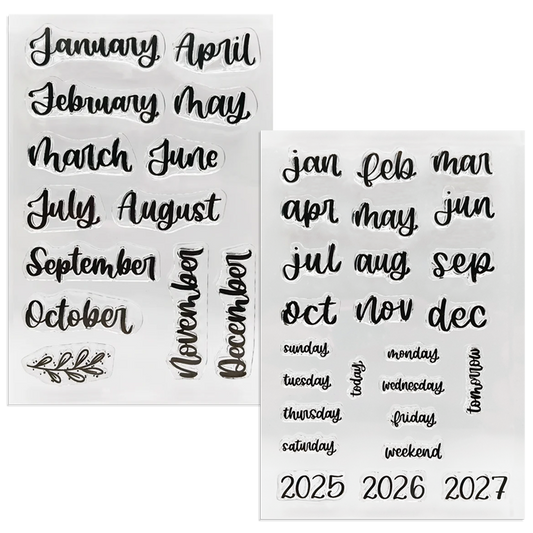 January April
February may
march June
July August
September
October
November
December
jan feb mar
apr may jun
jul aug sep
oct nov dec
sunday monday
tuesday today wednesday tomorrow
thursday friday
saturday weekend
2025 2026 2027